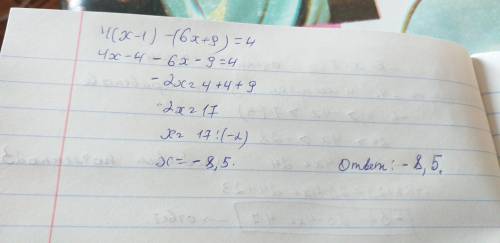 4(x-1)-(6x+9)=4
4x-4-6x-9=4
-2x=4+4+9
-2x=17
x=17:(-2)
x=-8,5. Ответ: -8,5.